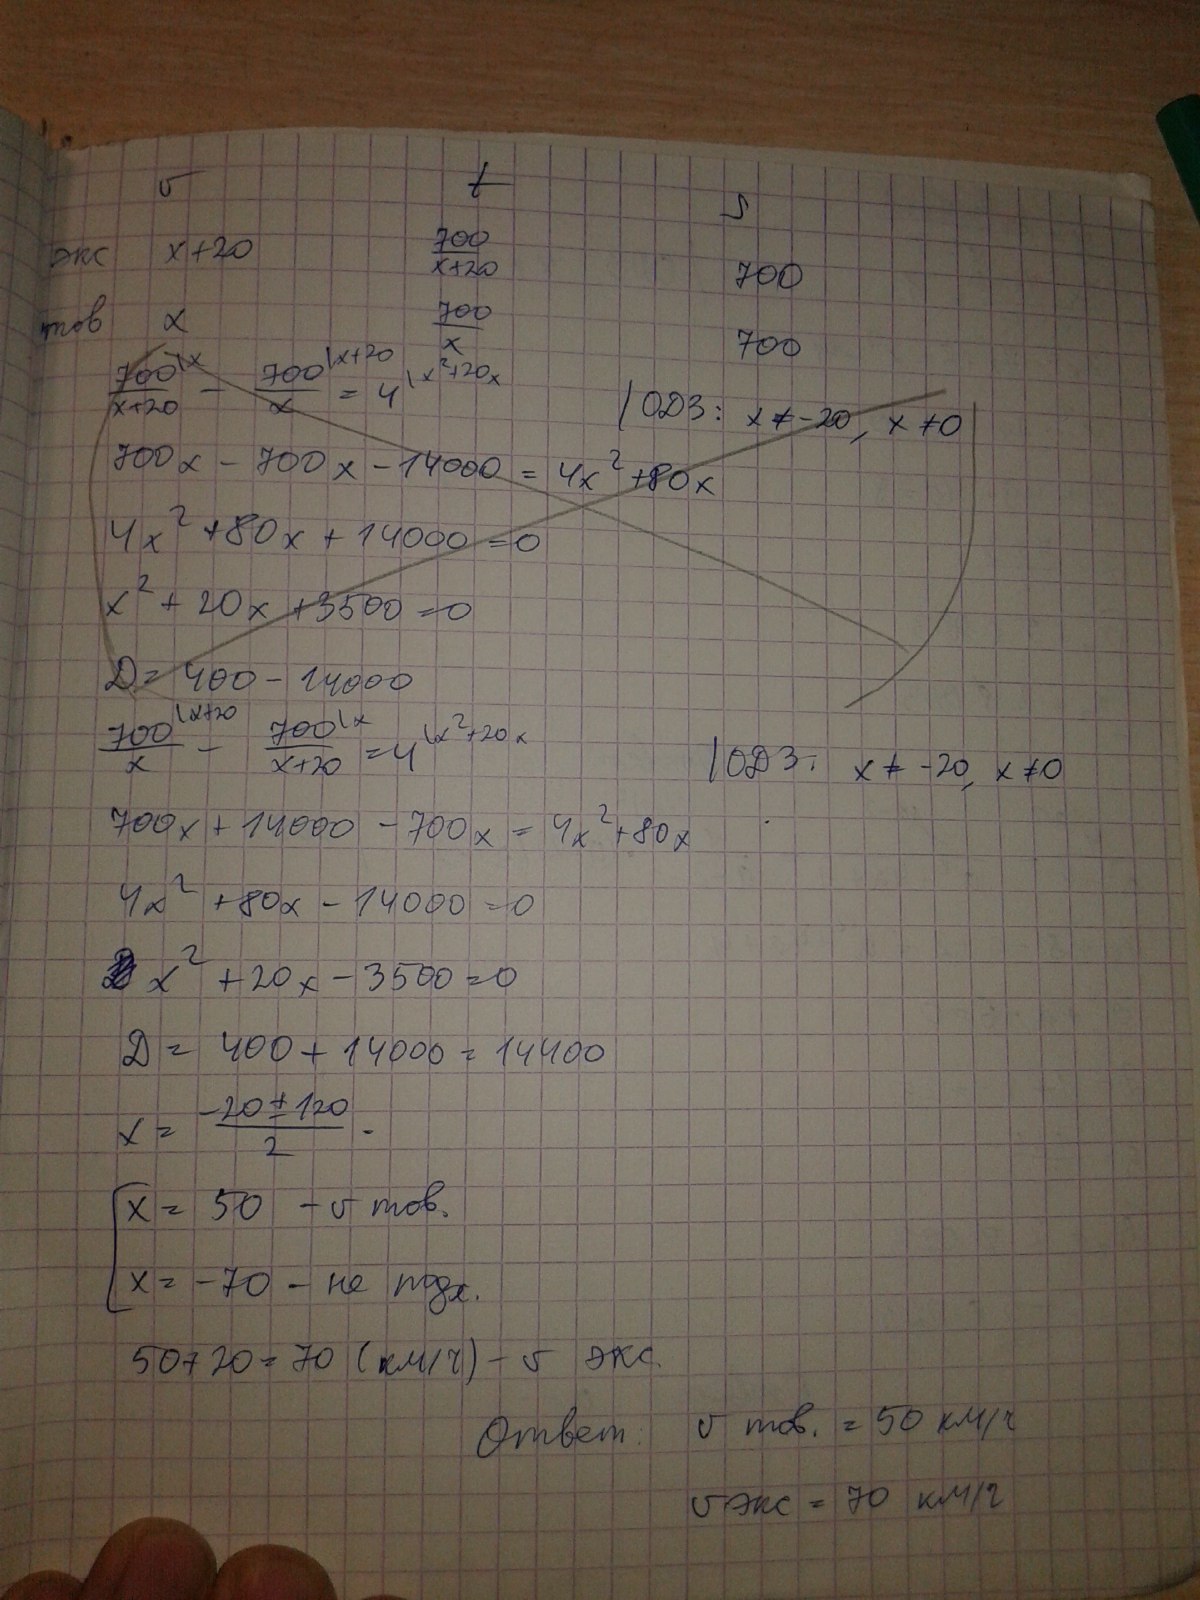 v t S
экс x+20 700/(x+20) 700
тов x 700/x 700
700\x/(x+20) - 700\x+20/x = 4\x²+20x | ОДЗ: x≠-20, x≠0
700x - 700x - 14000 = 4x²+80x
4x²+80x+14000=0
x²+20x+3500=0
D= 400-14000
700\x+20/x - 700\x/(x+20) = 4\x²+20x | ОДЗ: x≠-20, x≠0
700x+14000-700x = 4x²+80x
4x²+80x-14000=0
x²+20x-3500=0
D= 400+14000=14400
x= (-20±120)/2
[ x= 50 - v тов.
x= -70 - не подх.
50+20=70 (км/ч) - v экс.
Ответ: v тов. = 50 км/ч
v экс = 70 км/ч